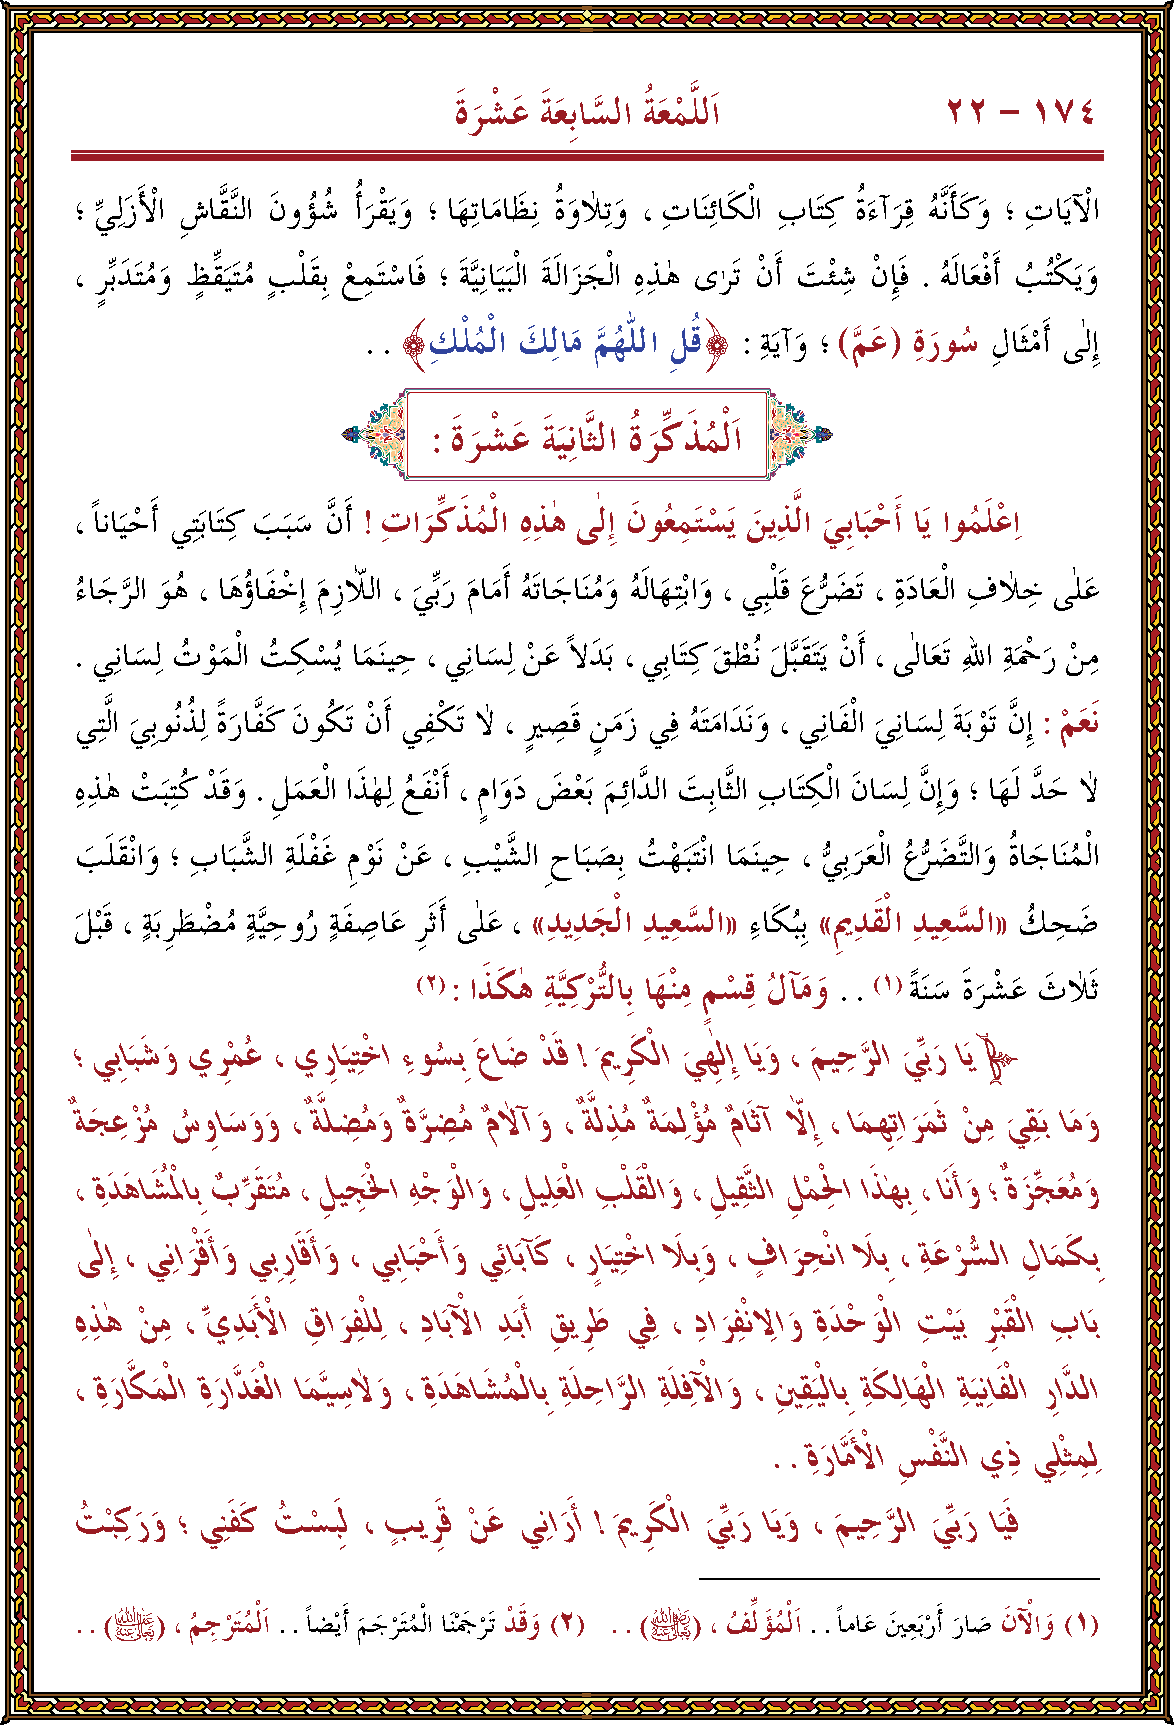 ١٧٤ – ٢٢ اَللَّمْعَةُ السَّابِعَةَ عَشْرَةَ
الْآيَاتِ ؛ وَكَأَنَّهُ قِرَآءَةُ كِتَابِ الْكَائِنَاتِ ، وَتِلَاوَةُ نِظَامَاتِهَا ؛ وَيَقْرَأُ شُؤُونَ النَّقَّاشِ الْأَزَلِيِّ ؛
وَيَكْتُبُ أَفْعَالَهُ . فَإِنْ شِئْتَ أَنْ تَرٰى هٰذِهِ الْجَزَالَةَ الْبَيَانِيَّةَ ؛ فَاسْتَمِعْ بِقَلْبٍ مُتَيَقِّظٍ وَمُتَدَبِّرٍ ،
إِلٰى أَمْثَالِ سُورَةِ (عَمَّ) ؛ وَآيَةِ : ﴿قُلِ اللّٰهُمَّ مَالِكَ الْمُلْكِ﴾ . .
اَلْمُذَكِّرَةُ الثَّانِيَةَ عَشْرَةَ :
اِعْلَمُوا يَا أَحْبَابِيَ الَّذِينَ يَسْتَمِعُونَ إِلٰى هٰذِهِ الْمُذَكِّرَاتِ ! أَنَّ سَبَبَ كِتَابَتِي أَحْيَاناً ،
عَلٰى خِلَافِ الْعَادَةِ ، تَضَرُّعَ قَلْبِي ، وَابْتِهَالَهُ وَمُنَاجَاتَهُ أَمَامَ رَبِّيَ ، اللَّازِمَ إِخْفَاؤُهَا ، هُوَ الرَّجَاءُ
مِنْ رَحْمَةِ اللهِ تَعَالٰى ، أَنْ يَتَقَبَّلَ نُطْقَ كِتَابِي ، بَدَلاً عَنْ لِسَانِي ، حِينَمَا يُسْكِتُ الْمَوْتُ لِسَانِي .
نَعَمْ : إِنَّ تَوْبَةَ لِسَانِيَ الْفَانِي ، وَنَدَامَتَهُ فِي زَمَنٍ قَصِيرٍ ، لَا تَكْفِي أَنْ تَكُونَ كَفَّارَةً لِذُنُوبِيَ الَّتِي
لَا حَدَّ لَهَا ؛ وَإِنَّ لِسَانَ الْكِتَابِ الثَّابِتَ الدَّائِمَ بَعْضَ دَوَامٍ ، أَنْفَعُ لِهٰذَا الْعَمَلِ . وَقَدْ كُتِبَتْ هٰذِهِ
الْمُنَاجَاةُ وَالتَّضَرُّعُ الْعَرَبِيُّ ، حِينَمَا انْتَبَهْتُ بِصَبَاحِ الشَّيْبِ ، عَنْ نَوْمِ غَفْلَةِ الشَّبَابِ ؛ وَانْقَلَبَ
ضَحِكُ «السَّعِيدِ الْقَدِيمِ» بِبُكَاءِ «السَّعِيدِ الْجَدِيدِ» ، عَلٰى أَثَرِ عَاصِفَةٍ رُوحِيَّةٍ مُضْطَرِبَةٍ ، قَبْلَ
ثَلَاثَ عَشْرَةَ سَنَةً (١) . . وَمَآلُ قِسْمٍ مِنْهَا بِالتُّرْكِيَّةِ هٰكَذَا : (٢)
يَا رَبِّيَ الرَّحِيمَ ، وَيَا إِلٰهِيَ الْكَرِيمَ ! قَدْ ضَاعَ بِسُوءِ اخْتِيَارِي ، عُمْرِي وَشَبَابِي ؛
وَمَا بَقِيَ مِنْ ثَمَرَاتِهِمَا ، إِلَّا آثَامٌ مُؤْلِمَةٌ مُذِلَّةٌ ، وَآلَامٌ مُضِرَّةٌ وَمُضِلَّةٌ ، وَوَسَاوِسُ مُزْعِجَةٌ
وَمُعَجِّزَةٌ ؛ وَأَنَا ، بِهٰذَا الْحِمْلِ الثَّقِيلِ ، وَالْقَلْبِ الْعَلِيلِ ، وَالْوَجْهِ الْخَجِيلِ ، مُتَقَرِّبٌ بِالْمُشَاهَدَةِ ،
بِكَمَالِ السُّرْعَةِ ، بِلَا انْحِرَافٍ ، وَبِلَا اخْتِيَارٍ ، كَآبَائِي وَأَحْبَابِي ، وَأَقَارِبِي وَأَقْرَانِي ، إِلٰى
بَابِ الْقَبْرِ بَيْتِ الْوَحْدَةِ وَالِانْفِرَادِ ، فِي طَرِيقِ أَبَدِ الْآبَادِ ، لِلْفِرَاقِ الْأَبَدِيِّ ، مِنْ هٰذِهِ
الدَّارِ الْفَانِيَةِ الْهَالِكَةِ بِالْيَقِينِ ، وَالْآفِلَةِ الرَّاحِلَةِ بِالْمُشَاهَدَةِ ، وَلَاسِيَّمَا الْغَدَّارَةِ الْمَكَّارَةِ ،
لِمِثْلِي ذِي النَّفْسِ الْأَمَّارَةِ . .
فَيَا رَبِّيَ الرَّحِيمَ ، وَيَا رَبِّيَ الْكَرِيمَ ! أَرَانِي عَنْ قَرِيبٍ ، لَبِسْتُ كَفَنِي ؛ وَرَكِبْتُ
(١) وَالْآنَ صَارَ أَرْبَعِينَ عَاماً . . اَلْمُؤَلِّفُ ، (رَضِيَ اللهُ تَعَالٰى عَنْهُ) . . (٢) وَقَدْ تَرْجَمْنَا الْمُتَرْجَمَ أَيْضاً . . اَلْمُتَرْجِمُ ، (عَفَا اللهُ تَعَالٰى عَنْهُ) . .